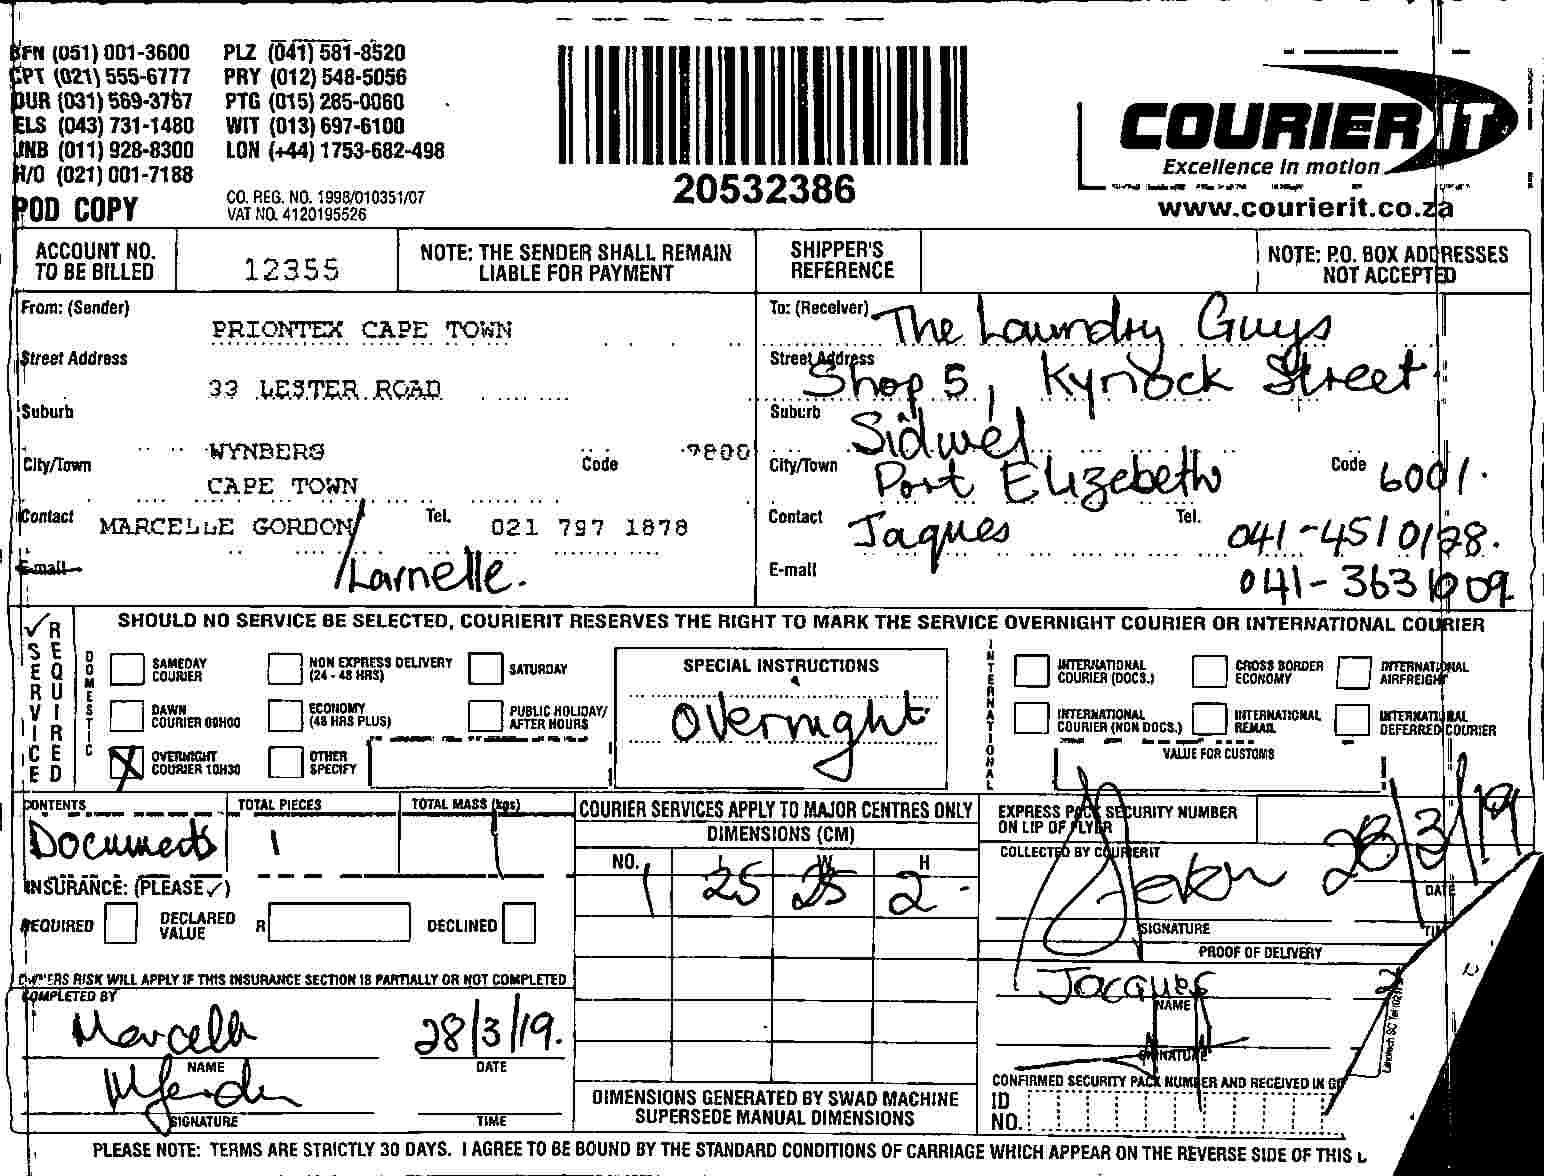 BFN (051) 001-3600 PLZ (041) 581-8520
CPT (021) 555-6777 PRY (012) 548-5056
DUR (031) 569-3767 PTG (015) 285-0060
ELS (043) 731-1480 WIT (013) 697-6100
JNB (011) 928-8300 LON (+44) 1753-682-498
H/O (021) 001-7188
POD COPY
CO. REG. NO. 1998/010351/07
VAT NO. 4120195526
20532386
COURIER IT
Excellence in motion
www.courierit.co.za
ACCOUNT NO. TO BE BILLED 12355
NOTE: THE SENDER SHALL REMAIN LIABLE FOR PAYMENT
SHIPPER'S REFERENCE
NOTE: P.O. BOX ADDRESSES NOT ACCEPTED
From: (Sender) PRIONTEX CAPE TOWN
Street Address 33 LESTER ROAD
Suburb WYNBERG
City/Town CAPE TOWN Code 7800
Contact MARCELLE GORDON/Larnelle. Tel. 021 797 1878
E-mail
To: (Receiver) The Laundry Guys
Street Address Shop 5, Kyrnock Street
Suburb Sidwel
City/Town Port Elizebeth Code 6001.
Contact Jaques Tel. 041-4510128.
E-mail 041-3631009
✓ SERVICE REQUIRED
SHOULD NO SERVICE BE SELECTED, COURIERIT RESERVES THE RIGHT TO MARK THE SERVICE OVERNIGHT COURIER OR INTERNATIONAL COURIER
DOMESTIC
SAMEDAY COURIER
NON EXPRESS DELIVERY (24 - 48 HRS)
SATURDAY
DAWN COURIER 09H00
ECONOMY (48 HRS PLUS)
PUBLIC HOLIDAY/ AFTER HOURS
X OVERNIGHT COURIER 10H30
OTHER SPECIFY
SPECIAL INSTRUCTIONS
Overnight
INTERNATIONAL
INTERNATIONAL COURIER (DOCS.)
CROSS BORDER ECONOMY
INTERNATIONAL AIRFREIGHT
INTERNATIONAL COURIER (NON DOCS.)
INTERNATIONAL REMAIL
INTERNATIONAL DEFERRED COURIER
VALUE FOR CUSTOMS
CONTENTS TOTAL PIECES TOTAL MASS (kgs)
Documents 1 1
INSURANCE: (PLEASE ✓)
REQUIRED DECLARED VALUE R DECLINED
OWNERS RISK WILL APPLY IF THIS INSURANCE SECTION IS PARTIALLY OR NOT COMPLETED
COMPLETED BY
Marcelle 28/3/19.
NAME DATE
SIGNATURE TIME
COURIER SERVICES APPLY TO MAJOR CENTRES ONLY
DIMENSIONS (CM)
NO. L W H
1 25 25 2
DIMENSIONS GENERATED BY SWAD MACHINE SUPERSEDE MANUAL DIMENSIONS
EXPRESS PACK SECURITY NUMBER ON LIP OF FLYER
COLLECTED BY COURIERIT
28/3/19
DATE
SIGNATURE
PROOF OF DELIVERY
Jacques
NAME
SIGNATURE
CONFIRMED SECURITY PACK NUMBER AND RECEIVED IN
ID NO.
PLEASE NOTE: TERMS ARE STRICTLY 30 DAYS. I AGREE TO BE BOUND BY THE STANDARD CONDITIONS OF CARRIAGE WHICH APPEAR ON THE REVERSE SIDE OF THIS